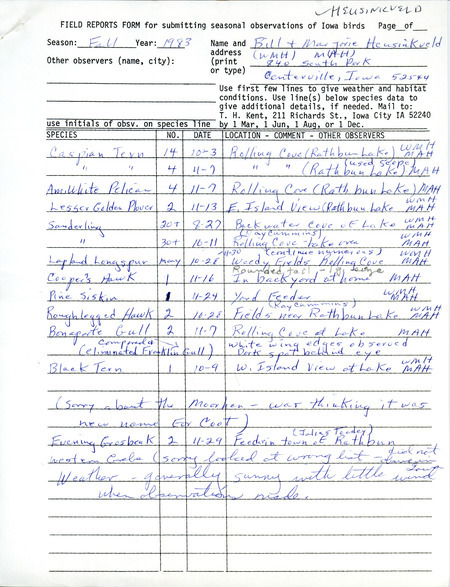 HEUSINKVELD
FIELD REPORTS FORM for submitting seasonal observations of Iowa birds Page__of__
Season: Fall Year: 1983 Name and Bill & Marjorie Heusinkveld
address (WMH) (MAH)
Other observers (name, city): (print 840 South Park
or type) Centerville, Iowa 52544
Use first few lines to give weather and habitat
conditions. Use line(s) below species data to
give additional details, if needed. Mail to:
T. H. Kent, 211 Richards St., Iowa City IA 52240
use initials of obsv. on species line by 1 Mar, 1 Jun, 1 Aug, or 1 Dec.
SPECIES NO. DATE LOCATION - COMMENT - OTHER OBSERVERS
Caspian Tern 14 10-3 Rolling Cove (Rathbun Lake) WMH MAH
" " 4 11-7 " " (used scope) (Rathbun Lake) MAH
Am. White Pelican 4 11-7 Rolling Cove (Rathbun Lake) MAH
Lesser Golden Plover 2 11-13 E. Island View (Rathbun Lake) WMH MAH
Sanderling 20+ 8-27 Backwater Cove of Lake WMH MAH
(Ray Cummins)
" 30+ 10-11 Rolling Cove - lake area MAH
11-30 (continue numerous)
Lapland Longspur many 10-26 Weedy Fields Rolling Cove WMH MAH
Rounded tail - lg. size
Cooper's Hawk 1 11-16 In backyard at home MAH
Pine Siskin 1 11-24 Yard Feeder
(Ray Cummins)
Roughlegged Hawk 2 10-28 Fields near Rathbun Lake WMH MAH
Bonaparte Gull 2 11-7 Rolling Cove at Lake MAH
compared white wing edges observed
(eliminated Franklin Gull) Dark spot behind eye
Black Tern 1 10-9 W. Island View at Lake WMH MAH
(Sorry about the Moorhen - was thinking it was
new name for Coot)
Evening Grosbeak 2 11-29 Feeder in town of Rathbun
Western Grebe (Sorry looked at wrong list - did not
Weather - generally sunny with little wind
when observations made.